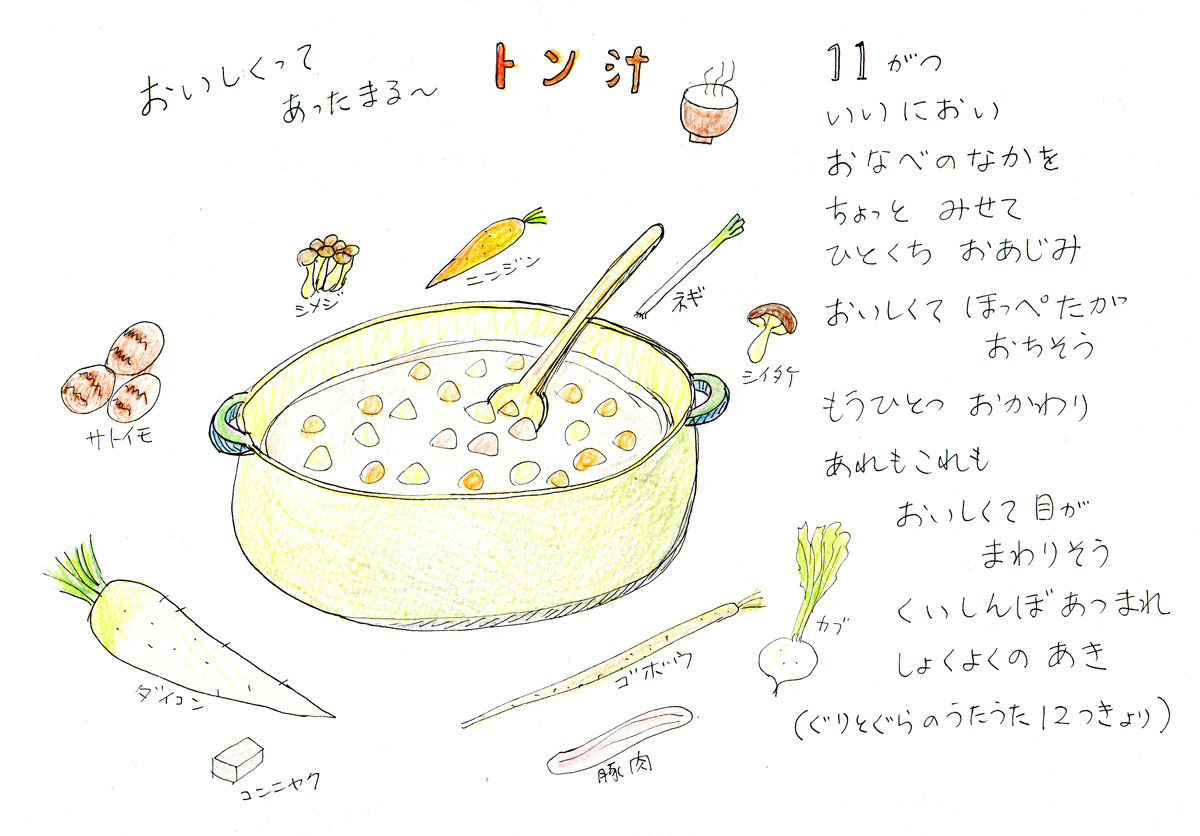 おいしくって
あったまる〜
トン汁
シメジ
ニンジン
ネギ
シイタケ
サトイモ
ダイコン
コンニャク
ゴボウ
豚肉
カブ
11がつ
いいにおい
おなべのなかを
ちょっと みせて
ひとくち おあじみ
おいしくて ほっぺたが
おちそう
もうひとつ おかわり
あれもこれも
おいしくて目が
まわりそう
くいしんぼあつまれ
しょくよくの あき
(ぐりとぐらのうたうた12つきより)